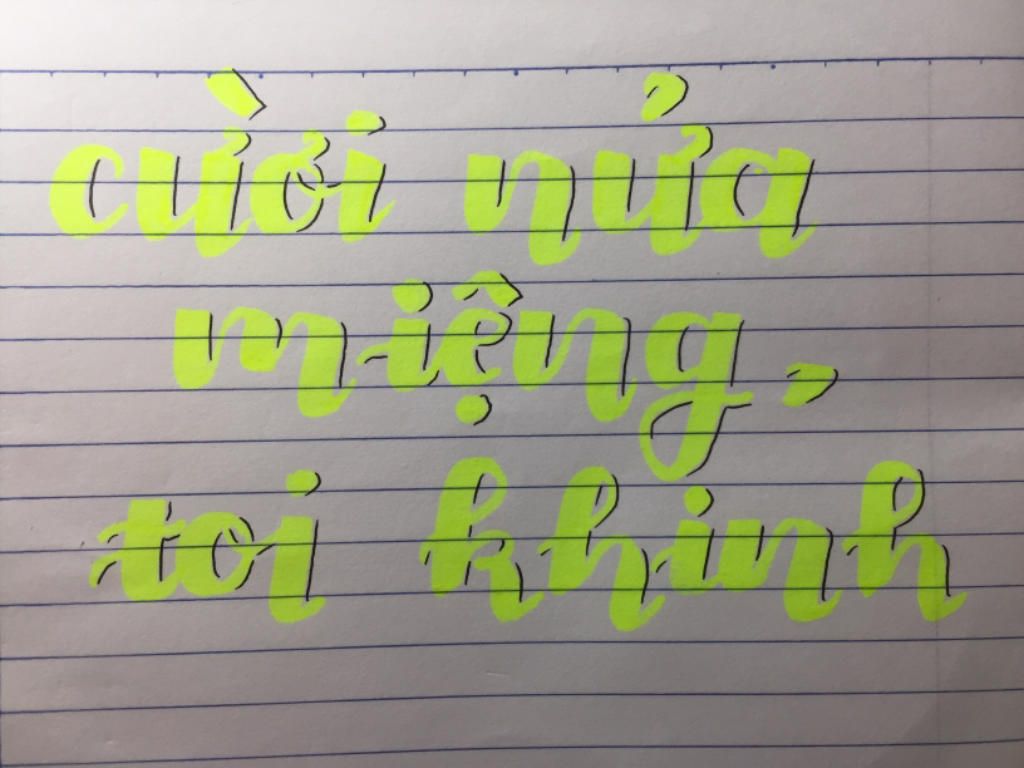 cười nửa
miệng,
toi khinh